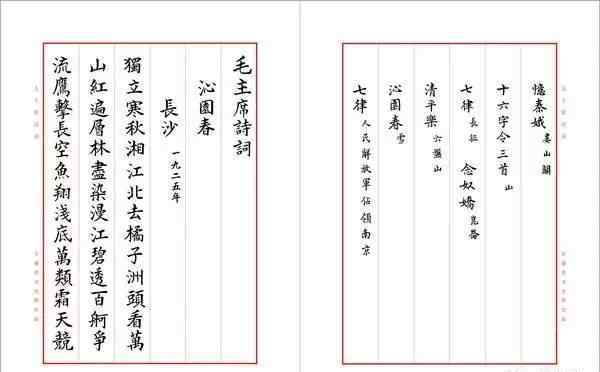 憶秦娥 婁山關
十六字令三首 山
七律 長征 念奴嬌 崑崙
清平樂 六盤山
沁園春 雪
七律 人民解放軍佔領南京
毛主席詩詞
沁園春
長沙 一九二五年
獨立寒秋湘江北去橘子洲頭看萬
山紅遍層林盡染漫江碧透百舸爭
流鷹擊長空魚翔淺底萬類霜天競